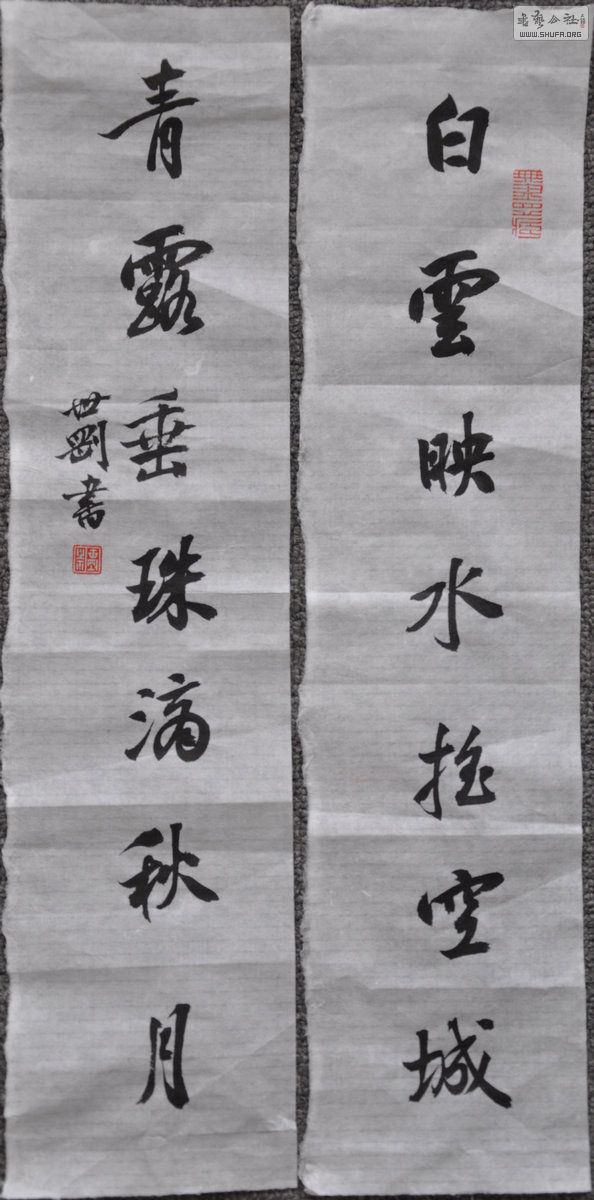 白雲映水搖空城
青露垂珠滴秋月
世剛書
書藝公社
WWW.SHUFA.ORG